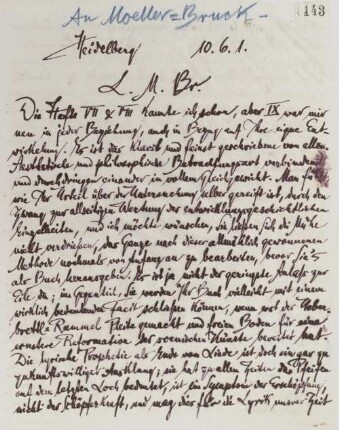 An Moeller-Bruck.
143
Heidelberg 10.6.1.
L. M. Br.
Die Hefte VII & VIII kannte ich schon, aber IX war mir
neu in jeder Beziehung, auch in Bezug auf Ihre eigne Ent-
wicklung. Es ist das klarst und feinst geschriebene von allen.
Aesthetische und philosophische Betrachtungsart verbinden
und durchdringen einander in vollem Gleichgewicht. Man fühlt,
wie Ihr Urteil über der Untersuchung selber gereift ist, durch den
Zwang zur allseitigen Wertung der entwicklungsgeschichtlichen
Einzelheiten, und ich möchte wünschen, Sie ließen sich die Mühe
nicht verdrießen, das Ganze nach dieser allmählich gewonnenen
Methode nochmals von Anfang an zu bearbeiten, bevor Sie's
als Buch herausgeben. Es ist ja nicht der geringste Anlaß zur
Eile da; im Gegenteil, Sie werden Ihr Buch vielleicht mit einem
wirklich bedeutenden Facit schließen können, wenn erst der Ueber-
brettl-Rummel Pleite gemacht und freien Boden für eine
ernstere Reformation der scenischen Künste bereitet hat.
Die lyrische Prophetie als Ende vom Liede ist doch ein gar zu
zukunftswilliger Ausklang; sie hat zu allen Zeiten das Pfeifen
auf dem letzten Loch bedeutet, ist ein Symptom der Erschöpfung,
nicht der Schöpferkraft, und mag dies für die Lyrik unsrer Zeit